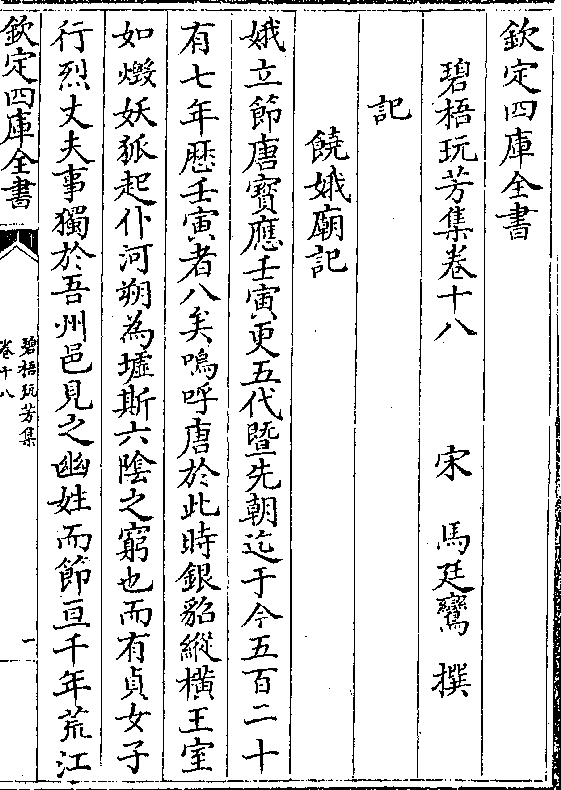 欽定四庫全書
碧梧玩芳集卷十八　宋　馬廷鸞　撰
記
饒娥廟記
娥立節唐寶應壬寅更五代暨先朝迄于今五百二十
有七年歴壬寅者八矣嗚呼唐於此時銀貂縱橫王室
如燬妖狐起仆河朔為墟斯六隂之窮也而有貞女子
行烈丈夫事獨於吾州邑見之幽姓而節亘千年荒江
欽定四庫全書
碧梧玩芳集
卷十八
一